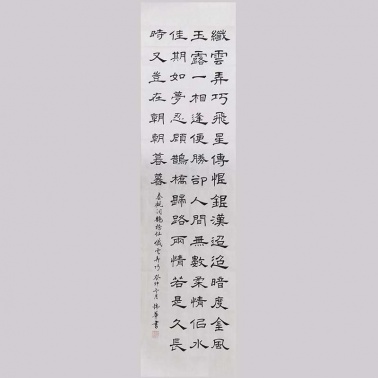 纖雲弄巧飛星傳恨銀漢迢迢暗度金風
玉露一相逢便勝卻人間無數柔情佀水
佳期如夢忍顧鵲橋歸路兩情若是久長
時又豈在朝朝暮暮
秦觀詞鵲橋仙纖雲弄巧 華書